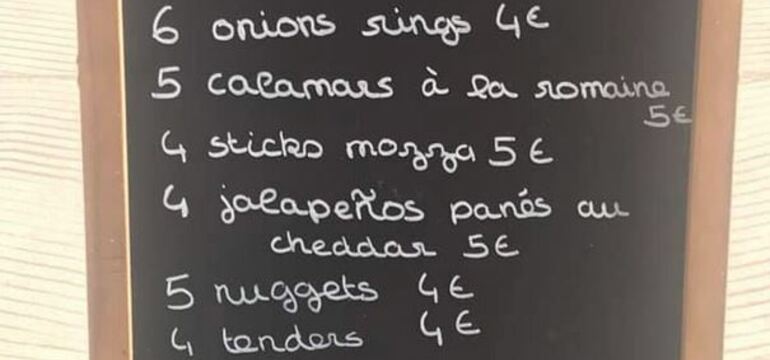 6 onions rings 4€
5 calamars à la romaine
5€
4 sticks mozza 5€
4 jalapeños panés au
cheddar 5€
5 nuggets 4€
4 tenders 4€